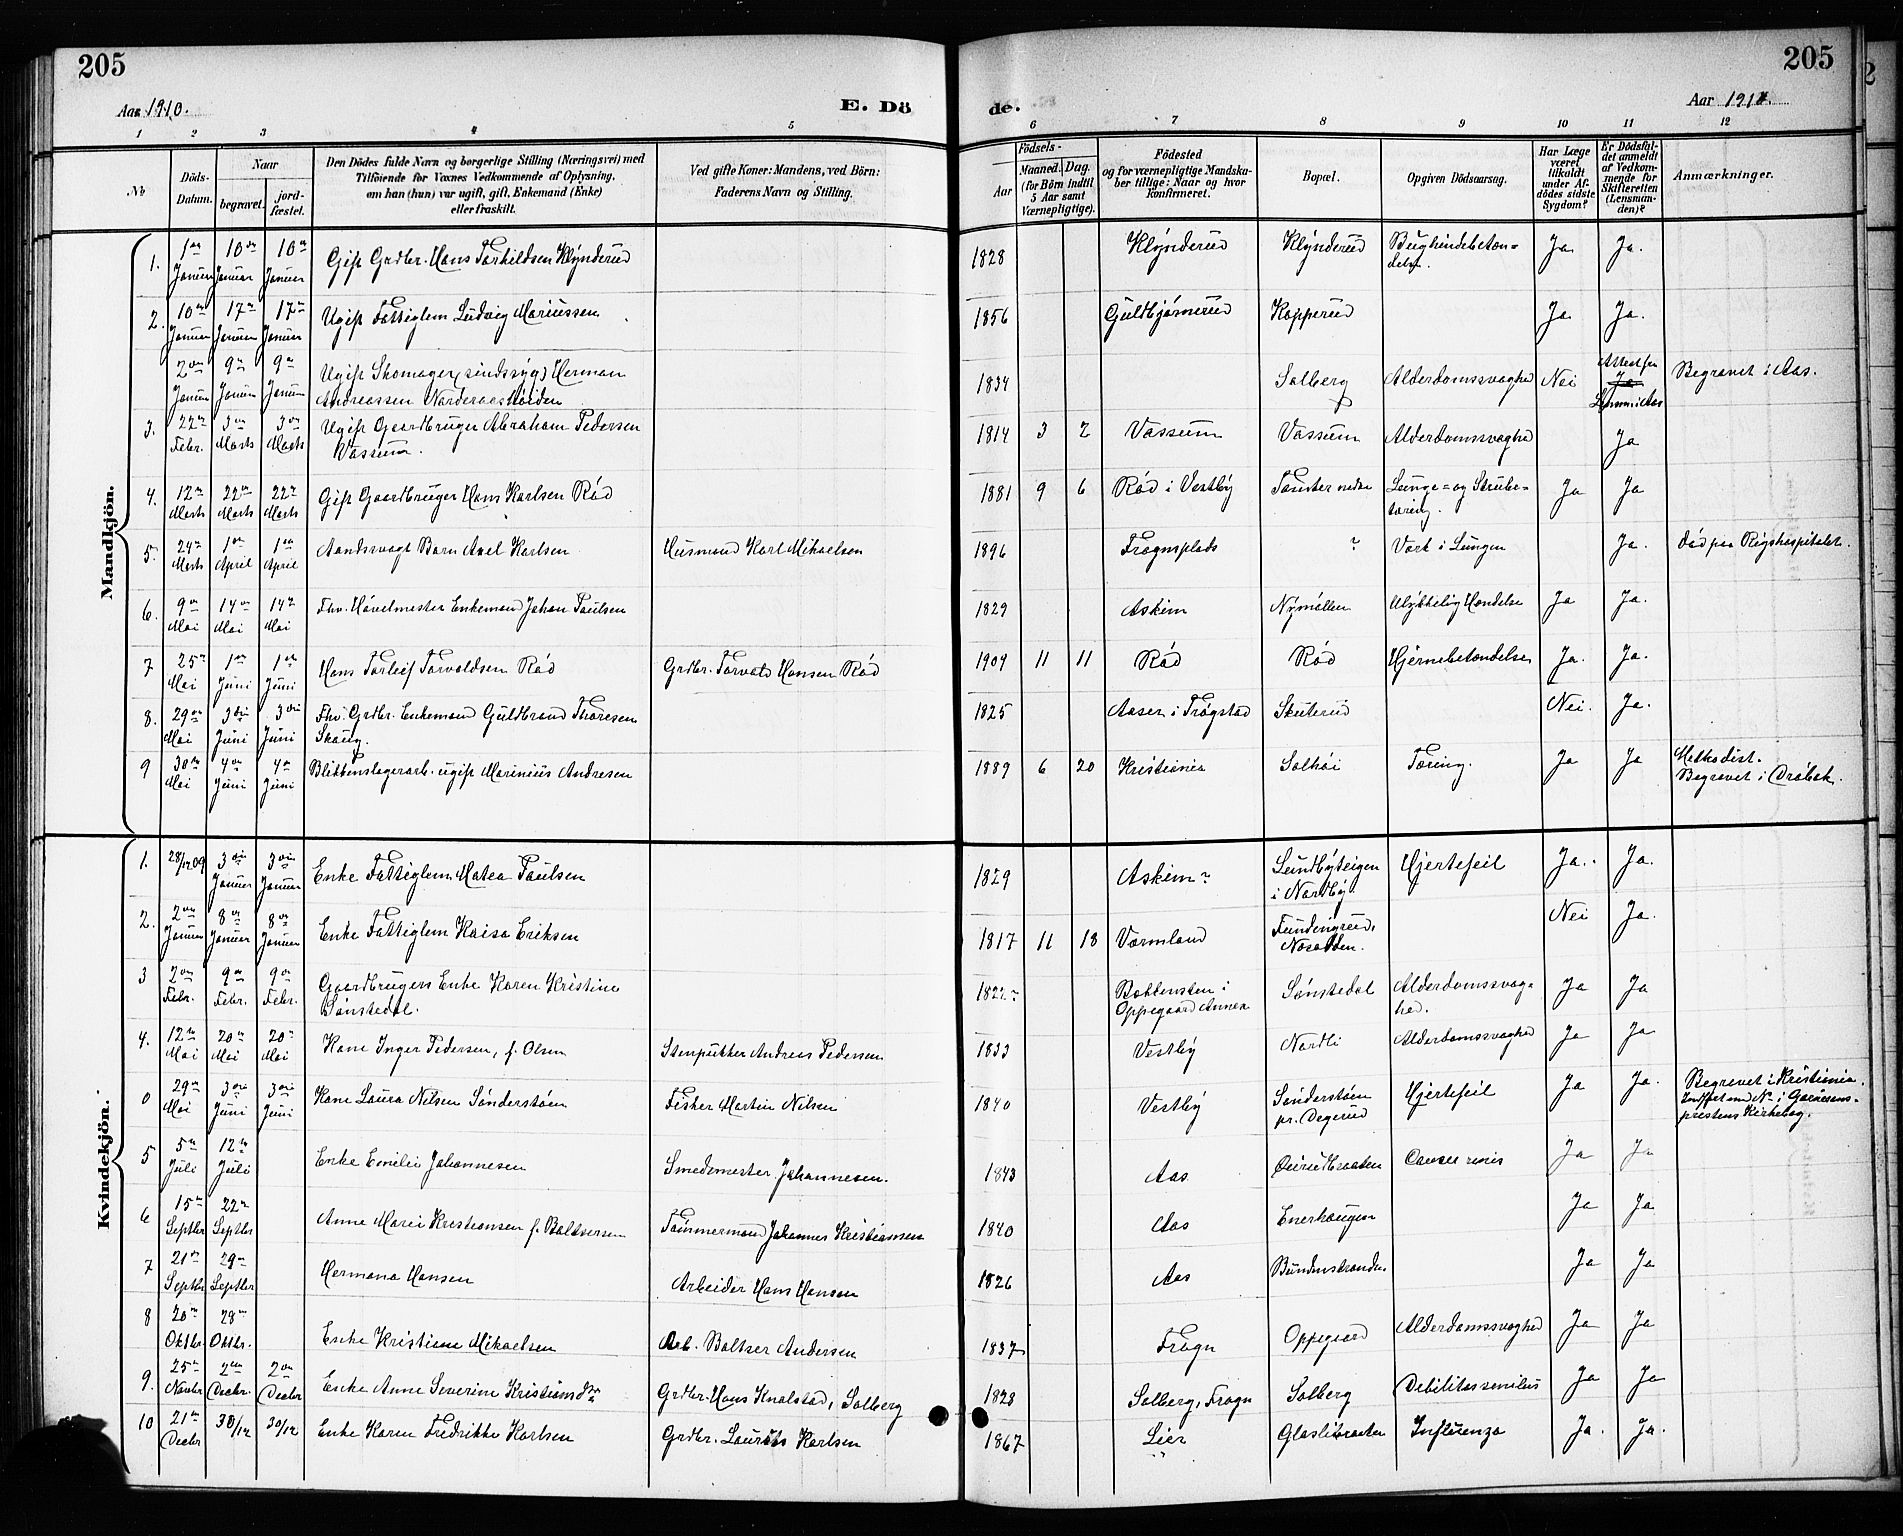 205
205
Aar 1910.
E. Dö
de.
Aar 1910.
1 2 3 4 5 6 7 8 9 10 11 12
No
Döds-Datum.
Naar
begravet.
jord-fæstet.
Den Dödes fulde Navn og borgerlige Stilling (Næringsvei) med
Tilföiende for Voxnes Vedkommende af Oplysning,
om han (hun) var ugift, gift, Enkemand (Enke)
eller fraskilt.
Ved gifte Koner: Mandens, ved Börn:
Faderens Navn og Stilling.
Födsels-
Aar
Maaned.
Dag.
(for Börn indtil
5 Aar samt
Værnepligtige).
Födested
og for værnepligtige Mandska-
ber tillige: Naar og hvor
konfirmeret.
Bopæl.
Opgiven Dödsaarsag.
Har Læge
været
tilkaldt
under Af-
dödes sidste
Sygdom?
Er Dödsfal-
det anmeldt
af Vedkom-
mende for
Skifteretten
(Lensman-
den)?
Anmærkninger.
Mandkjön.
1. 1ste Januar 10de Januar 10de Januar Gift Grdbr. Hans Torkildsen Klynderud 1828 Klynderud Klynderud Bughindebetæn=
delse. Ja Ja.
2. 10de Januar 17de Januar 17de Januar Ugift Fattiglem Ludvig Mariussen 1856 Guldbjørnerud Kopperud Ja Ja.
2den Januar 9de Januar 9de Januar Ugift Skomager (sindssyg) Herman
Andreassen Norderaashøiden 1834 Solberg Alderdomssvaghed Nei Attest fra
Ja
Lensm. i Aas Begravet i Aas.
3. 22de Febr. 3die Marts 3die Marts Ugift Gaardbruger Abraham Pedersen
Vassum. 1814 3 2 Vassum Vassum Alderdomssvaghed Ja
4. 12te Marts 22de Marts 22de Marts Gift Gaardbruger Hans Karlsen Rød 1881 9 6 Rød i Vestby Taunter nedre Lunge= og Strube=
tæring. Ja Ja
5. 24de Marts 1ste April 1ste April Aandssvagt Barn Axel Karlsen Husmand Karl Mikaelsen 1896 Frognsplads ? Vært i Lungen Ja. død paa Rigshospitalet.
6. 9de Mai 14de Mai 14de Mai Fhv. Høvelmester Enkemand Johan Paulsen 1829 Askim Nymøllen Ulykkelig Hændelse Ja Ja.
7 25de Mai 1ste Juni 1ste Juni Hans Torleif Torvaldsen Rød Grdbr. Torvald Hansen Rød 1909 11 11 Rød Rød Hjernebetændelse Ja. Ja.
8. 29de Mai 3die Juni 3die Juni Fhv. Grdbr. Enkemand Guldbrand Thoresen
Skaug. 1825 Aaser i Trøgstad Skuterud Nei. Ja.
9 30te Mai 4de Juni 4de Juni Blikkenslagerarb. ugift Marinius Andresen 1889 6 20 Kristiania Solhøi Tæring. Ja Ja Methodist.
Begravet i Drøbak.
Kvindekjön.
1. 28/12 09 3die Januar 3die Januar Enke Fattiglem Matea Paulsen 1829 Askim? Lundbyteigen
i Nordby. Hjertefeil Ja. Ja.
2. 2den Januar 8de Januar 8de Januar Enke Fattiglem Kaisa Eriksen 1817 11 18 Vermland Fundingrud,
Nesodden. Nei Ja.
3 2den Febr. 9de Febr. 9de Febr. Gaardbrugers Enke Karen Kristine
Sønstedal. 1822? Bokkensten i
Oppegaard Annex Sønstedal Alderdomssvag=
hed. Ja Ja
4. 12te Mai 20de Mai 20de Mai Kone Inger Pedersen, f. Olsen Stenpukker Andreas Pedersen 1833 Vestby Nordli Alderdomssvaghed Ja Ja
0 29de Mai 3die Juni 3die Juni Kone Laura Nilsen Sønderstøen Fisker Martin Nilsen 1840 Vestby Sønderstøen
pr. Degerud Hjertefeil Ja Ja. Begravet i Kristiania.
Indført med No i Garnisons-
prestens Kirkebog.
5 5te Juli 12te Juli Enke Emilie Johannesen Smedemester Johannesen. 1843 Aas Cancer Ja Ja
6 15de Septbr 22de Septbr Anne Marie Kristiansen f. Baltsersen Tømmermand Johannes Kristiansen 1840 Aas Enerhaugen Ja Ja
7 21de Septbr 29de Septbr Hermana Hansen Arbeider Hans Hansen 1826 Aas Bundenstranden Ja Ja
8 20de Oktbr. 28de Oktbr. Enke Kristiane Mikaelsen Arb. Baltser Andersen 1837 Frogn Oppegaard Alderdomssvaghed Ja Ja
9. 25de Novbr 2den Decbr. 2den Decbr Enke Anne Severine Kristiansdtr Grdbr. Hans Knalstad, Solberg 1828 Solberg, Frogn Solberg Debilitas senilis Ja Ja
10 21de Decbr 30/12 30/12 Enke Karen Fredrikke Karlsen Grdbr. Laurits Karlsen 1867 Lier Glaslibraaten Influenza Ja. Ja.